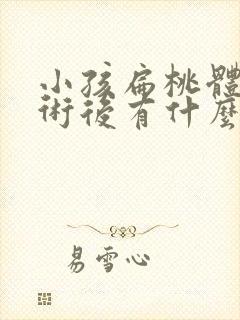 小孩扁桃體
術後有什麼
易雪心